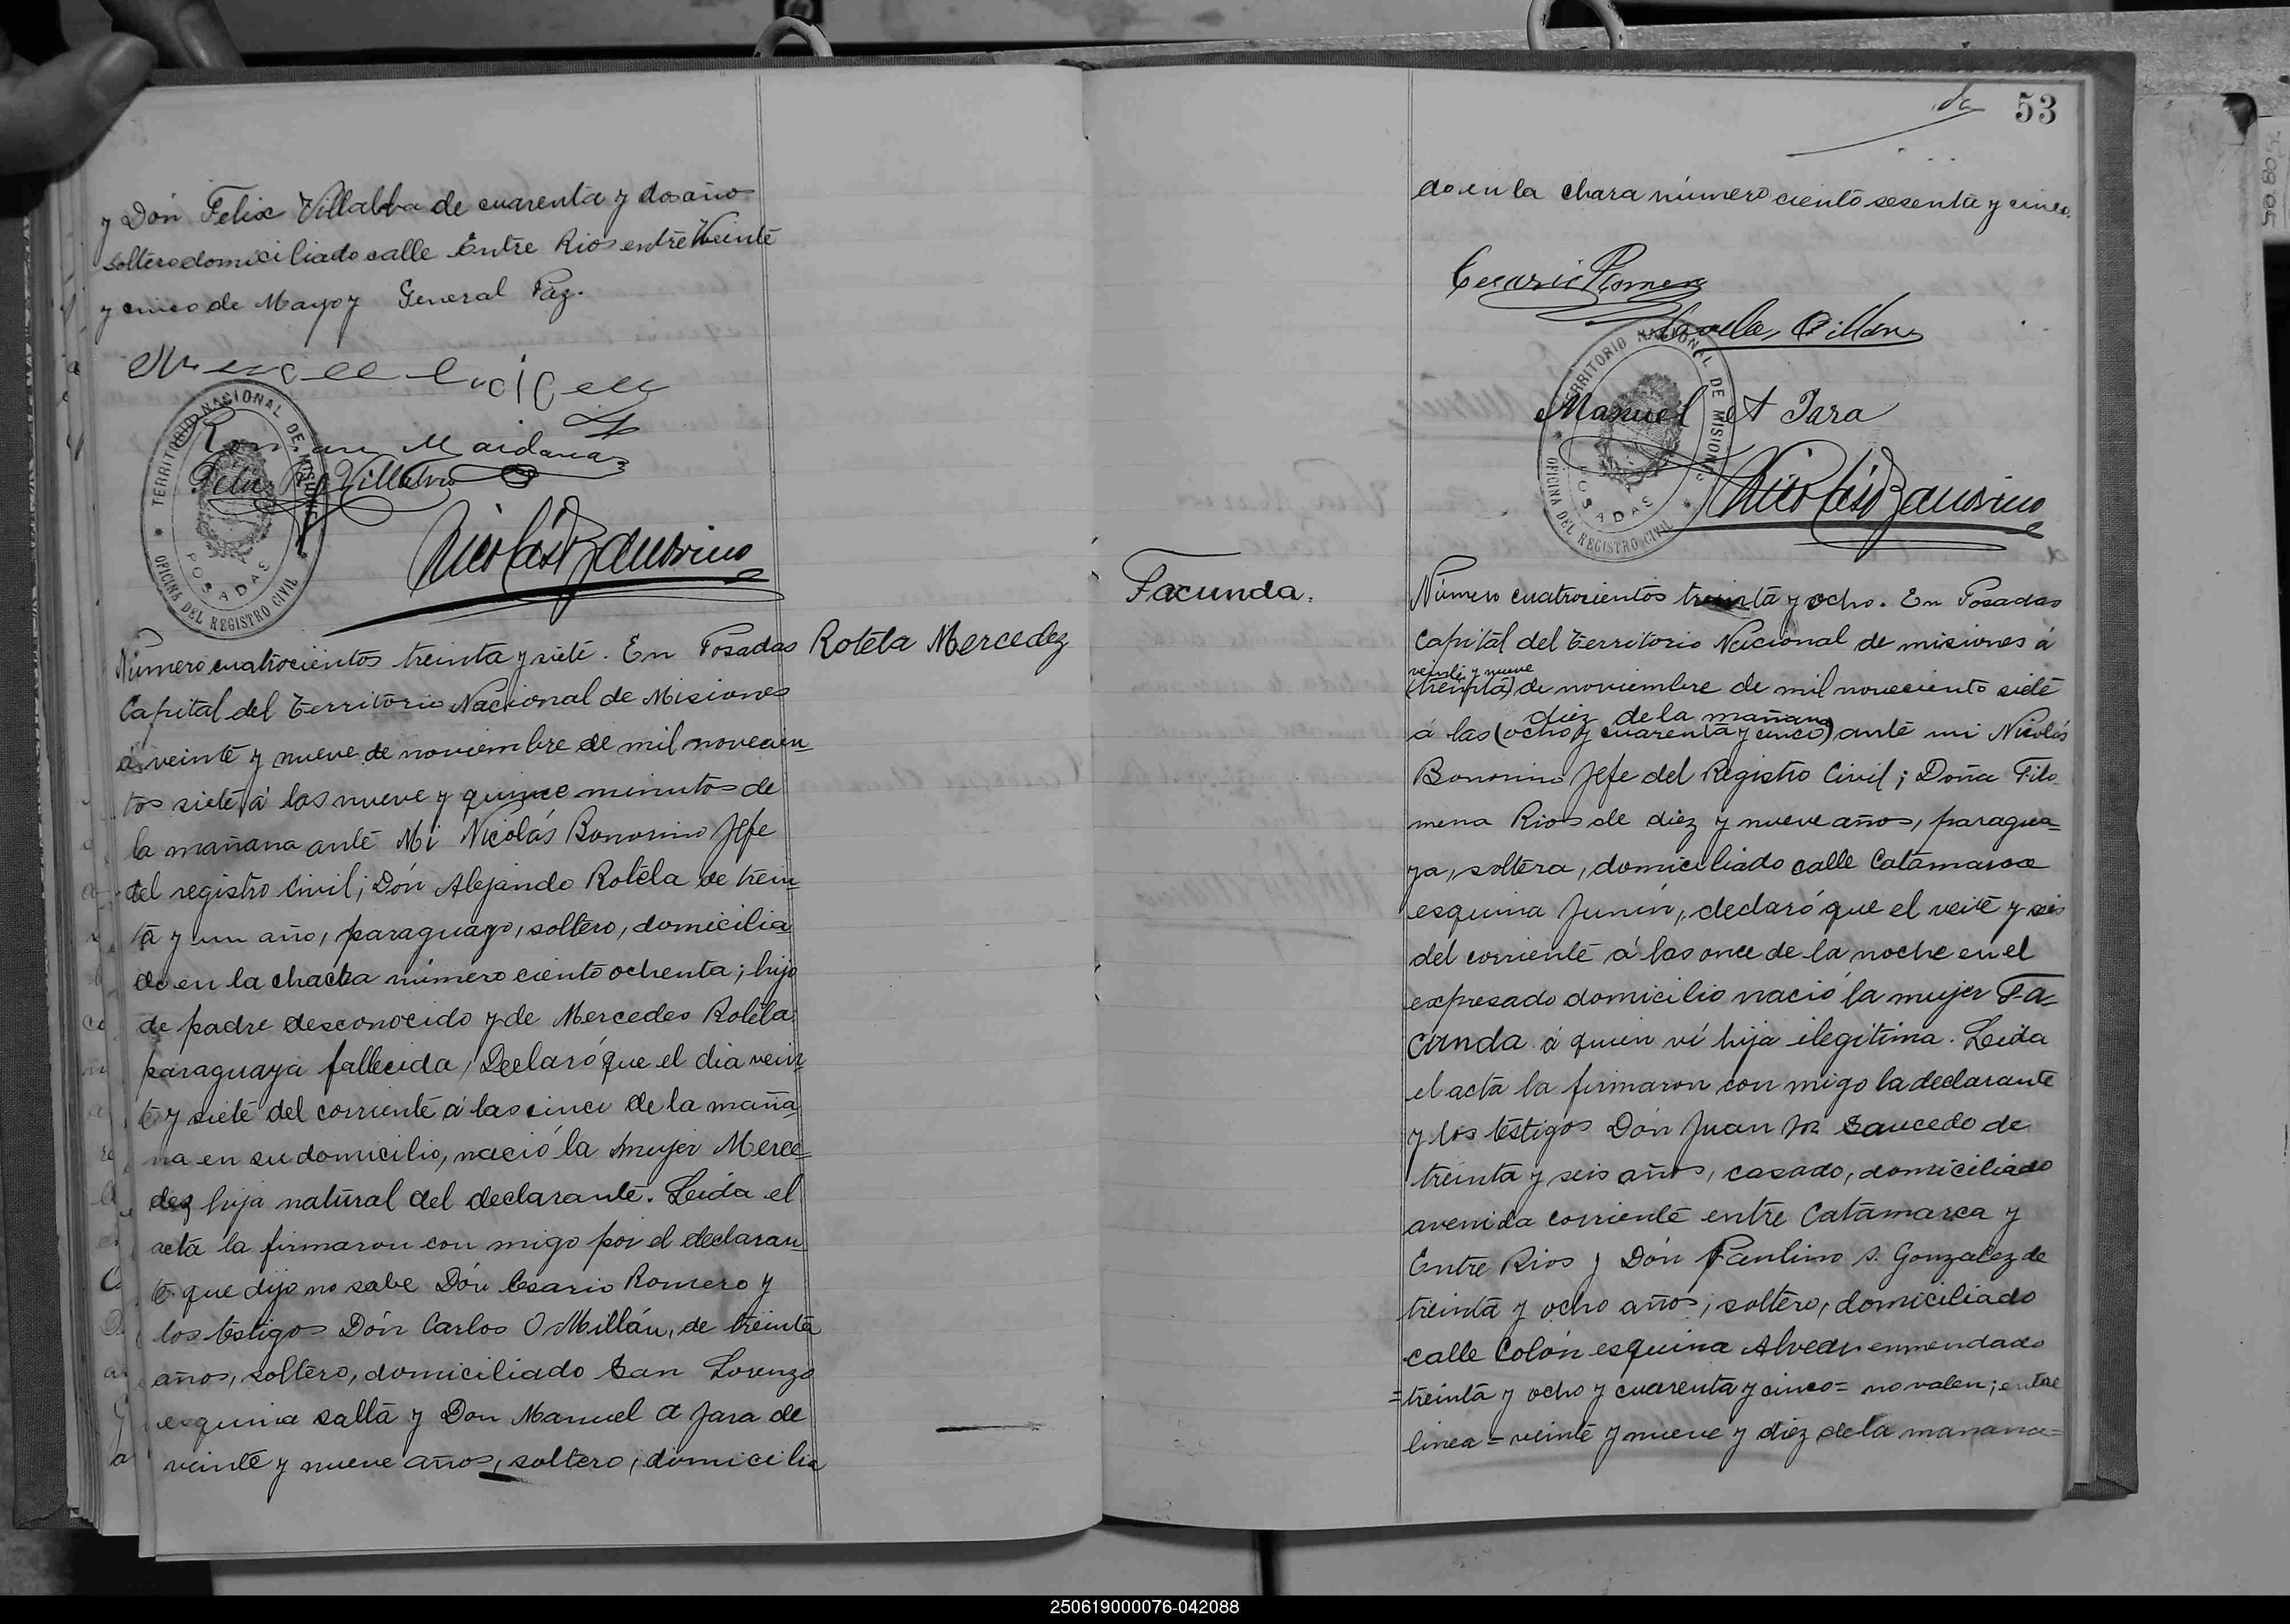 y Dón Felix Villalba de cuarenta y dos año
soltero domiciliado calle Entre Rios entre Veinte
y cinco de Mayo y General Paz.
Roman Maidana
Felix Villalva
TERRITORIO NACIONAL DE MISIONES
OFICINA DEL REGISTRO CIVIL
POSADAS
Nicolás Bonorino
Rotela Mercedez
Número cuatrocientos treinta y siete. En Posadas
Capital del Territorio Nacional de Misiones
á veinte y nueve de noviembre de mil novecien
tos siete á las nueve y quince minutos de
la mañana ante Mi Nicolás Bonorino Jefe
del registro Civil; Dón Alejando Rotela de trein
ta y un año, paraguayo, soltero, domicilia
do en la chacra número ciento ochenta; hijo
de padre desconocido y de Mercedes Rotela
paraguaya fallecida, Declaró que el dia vein
te y siete del corriente á las cinco de la maña
na en su domicilio, nació la mujer Merce
dez hija natural del declarante. Leida el
acta la firmaron con migo por el declaran
te que dijo no sabe Dón Cesario Romero y
los testigos Dón Carlos O Millán, de treinta
años, soltero, domiciliado San Lorenzo
esquina salta y Don Manuel A Jara de
veinte y nueve años, soltero, domicilia
53
do en la chara número ciento sesenta y cinco.
Cesario Romero
Millan
Manuel A Jara
TERRITORIO NACIONAL DE MISIONES
OFICINA DEL REGISTRO CIVIL
POSADAS
Nicolás Bonorino
Facunda.
Número cuatrocientos treinta y ocho. En Posadas
Capital del Territorio Nacional de misiones á
veinte y nueve
(treinta) de noviembre de mil noveciento siete
diez de la mañana
á las (ocho y cuarenta y cinco) ante mi Nicolás
Bonorino Jefe del Registro Civil; Doña Filo
mena Rios de diez y nueve años, paragua=
ya, soltera, domiciliado calle Catamarca
esquina Junín, declaró que el veite y seis
del corriente á las once de la noche en el
expresado domicilio nació la mujer Fa=
cunda á quien ví hija ilegítima. Leida
el acta la firmaron con migo la declarante
y los testigos Dón Juan M. Saucedo de
treinta y seis años, casado, domiciliado
avenida corriente entre Catamarca y
Entre Rios y Dón Paulino S. Gonzalez de
treinta y ocho años, soltero, domiciliado
calle Colón esquina Alvear enmendado
=treinta y ocho y cuarenta y cinco= no valen; entre
linea = veinte y nueve y diez de la manana=
250619000076-042088